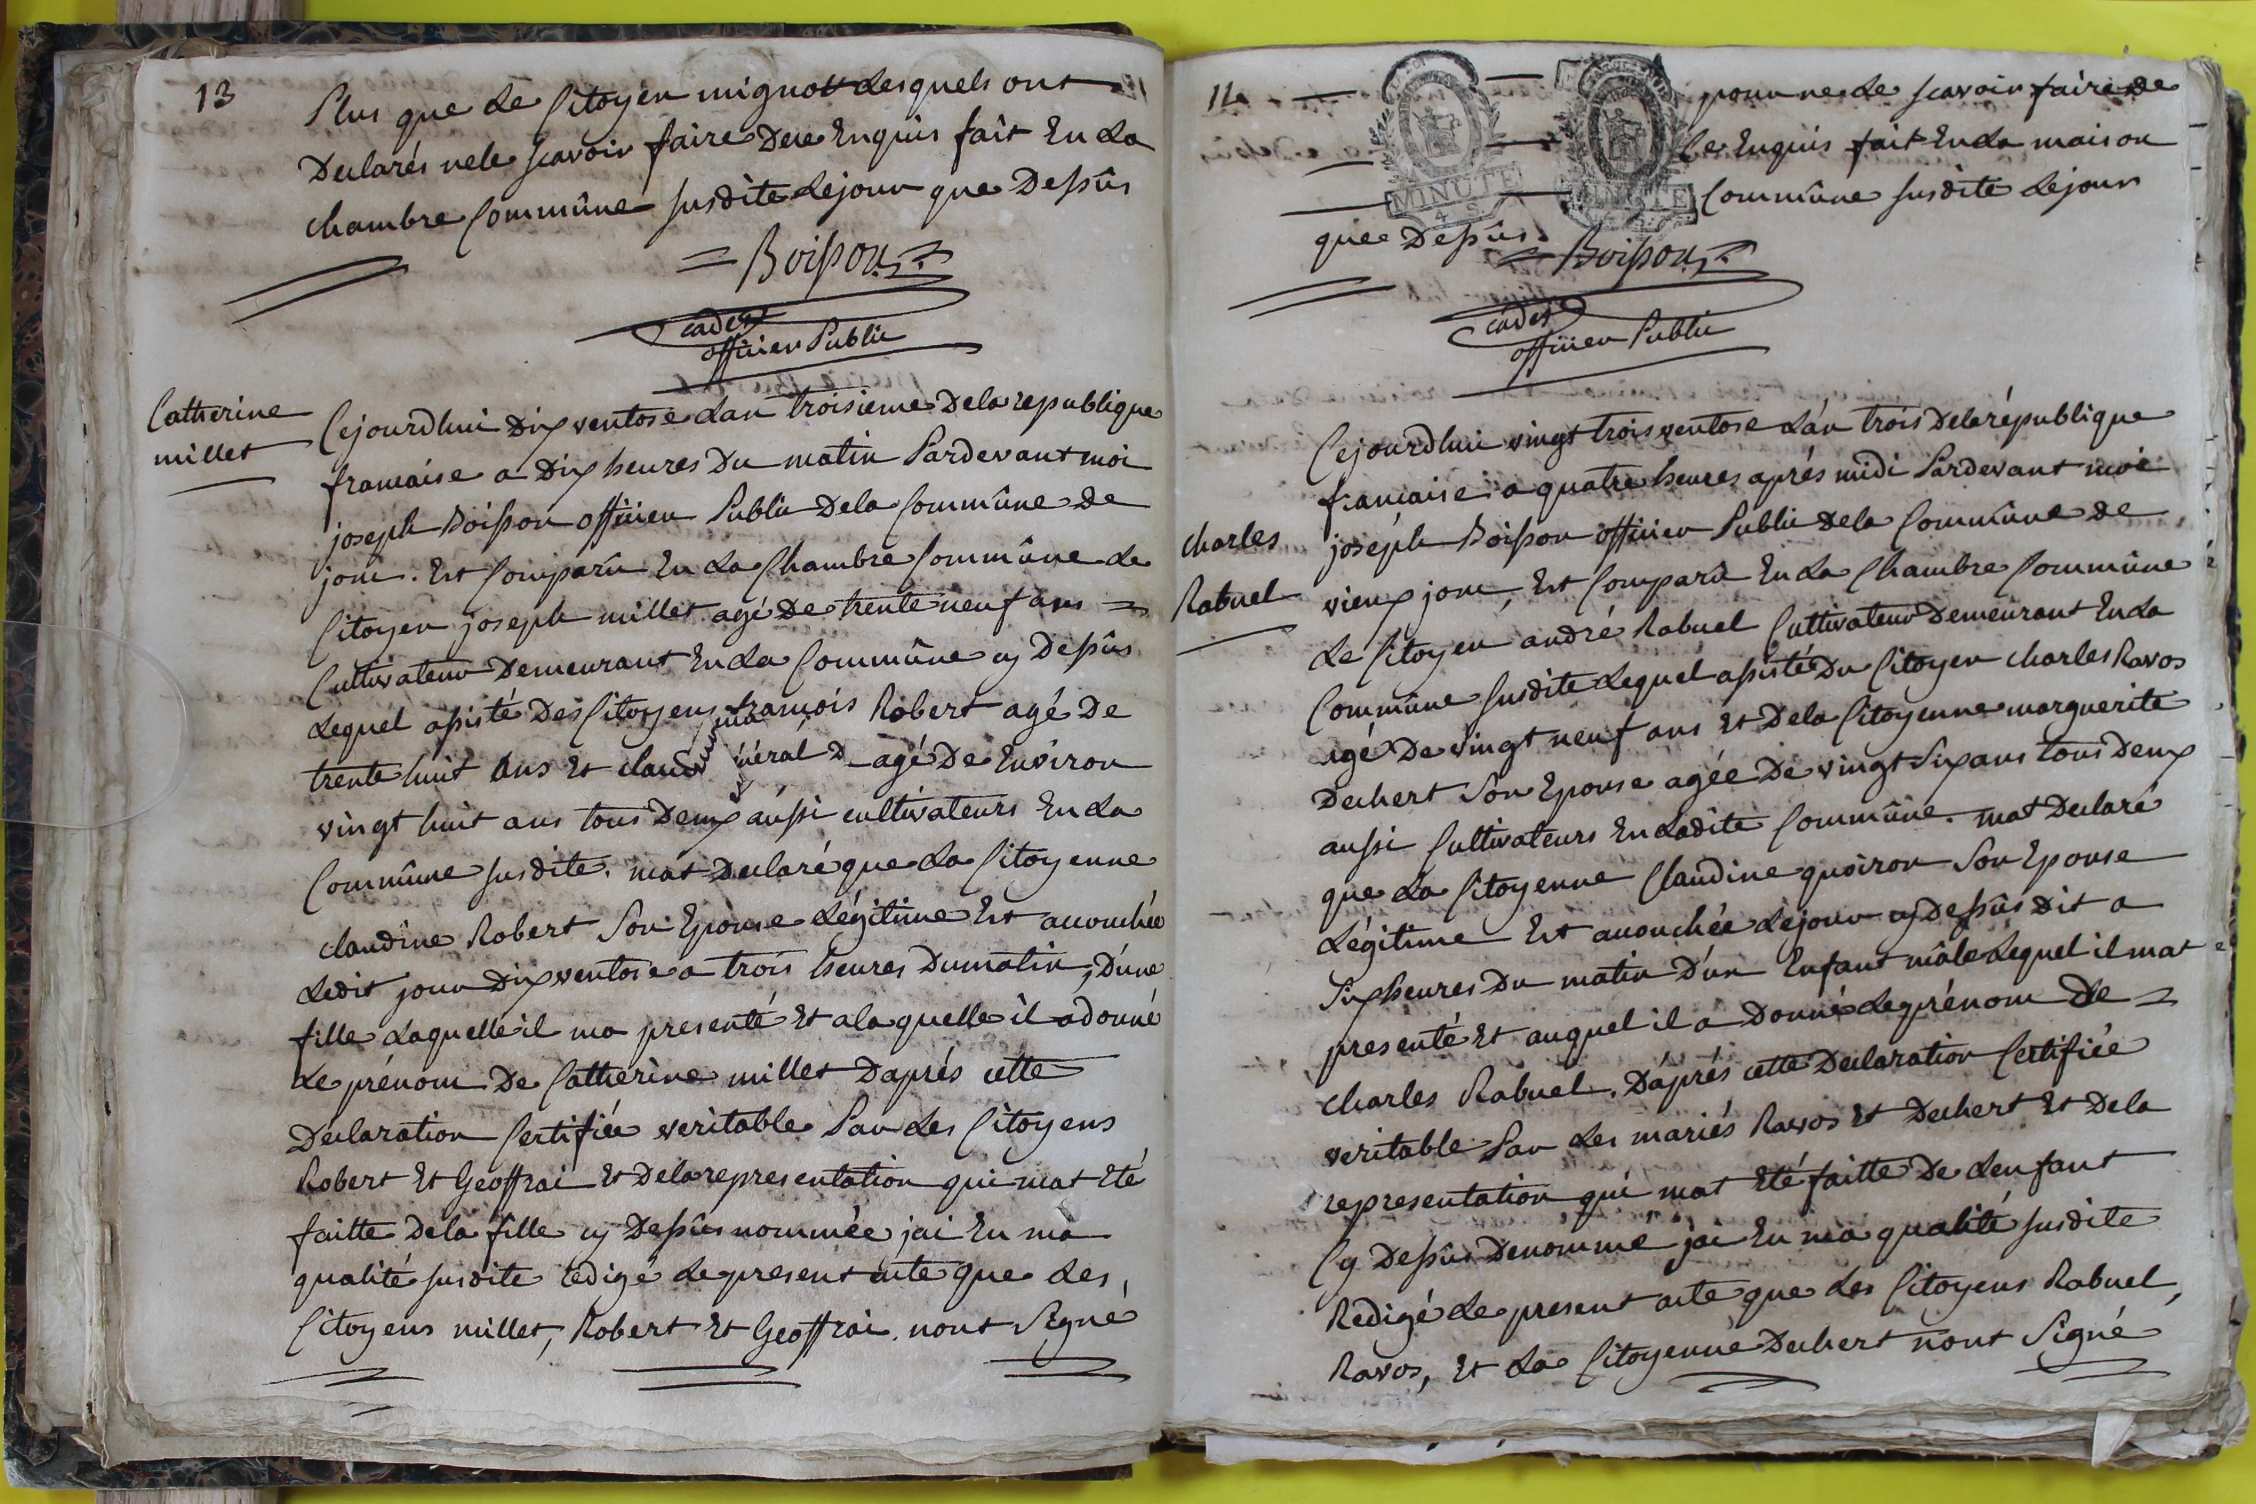 13
Plus que Le Citoyen mignot Lesquels ont
Declarés nele scavoir faire De ce Enquis fait En La
chambre Commûne susdite Lejour que Dessûs
Boisson
cadet
officier Public
Catherine
millet
Cejourdhui Dix ventose Lan troisieme Dela republique
francaise a Dix heures Du matin Pardevant moi
joseph Boisson officier Public Dela Commûne de
joux. Est Comparû En La Chambre Commûne Le
Citoyen joseph millet agé De trente neuf ans
Cultivateur Demeurant En La Commûne cy Dessûs
Lequel assisté Des Citoyens francois Robert agé De
trente huit ans Et claude agé De Environ
vingt huit ans tous Deux aussi cultivateurs En La
Commûne susdite. mat Declaré que La Citoyenne
claudine Robert Son Epouse Légitime Est accouchée
Ledit jour Dix ventose a trois heures Dumatin, D'une
fille Laquelle il ma presenté Et a la quelle il a donné
Le prénom De Catherine millet D'aprés cette
Declaration Certifiée veritable Par Les Citoyens
Robert Et Geoffrai Et Dela representation qui mat Eté
faitte Dela fille cy Dessûs nommée jai En ma
qualité susdite redigé Le present acte que Les
Citoyens millet, Robert Et Geoffrai nont Signé
14
MINUTE
4 S.
MINUTE
pour ne Le scavoir faire De
Ce Enquis fait En La maison
Commûne susdite Lejour
que Dessûs.
Boisson
cadet
officier Public
charles
Rabuel
Cejourdhui vingt trois ventose L'an trois Dela république
francaise a quatre heures aprés midi Pardevant moi
joséph Boisson officier Public Dela Commûne De
vieux joux, Est Comparû En La Chambre Commûne
Le Citoyen andré Rabuel Cultivateur Demeurant En La
Commûne susdite Lequel assisté Du Citoyen charles Ravos
agé De vingt neuf ans Et Dela Citoyenne marguerite
Dechert Son Epouse agée De vingt Six ans tous Deux
aussi Cultivateurs En Ladite Commûne. mat Declaré
que La Citoyenne Claudine quoiron Son Epouse
Légitime Est accouchée Lejour cy Dessûs Dit a
Six heures Du matin D'un Enfant mâle Lequel il mat
presenté Et auquel il a Donné Le prénom De
charles Rabuel. D'aprés cette Declaration Certifiée
veritable Par Les mariés Ravos Et Dechert Et Dela
representation qui mat Eté faitte De Lenfant
Cy Dessûs Denommé jai En ma qualité susdite
Redigé Le present acte que Les Citoyens Rabuel,
Ravos, Et La Citoyenne Dechert nont Signé